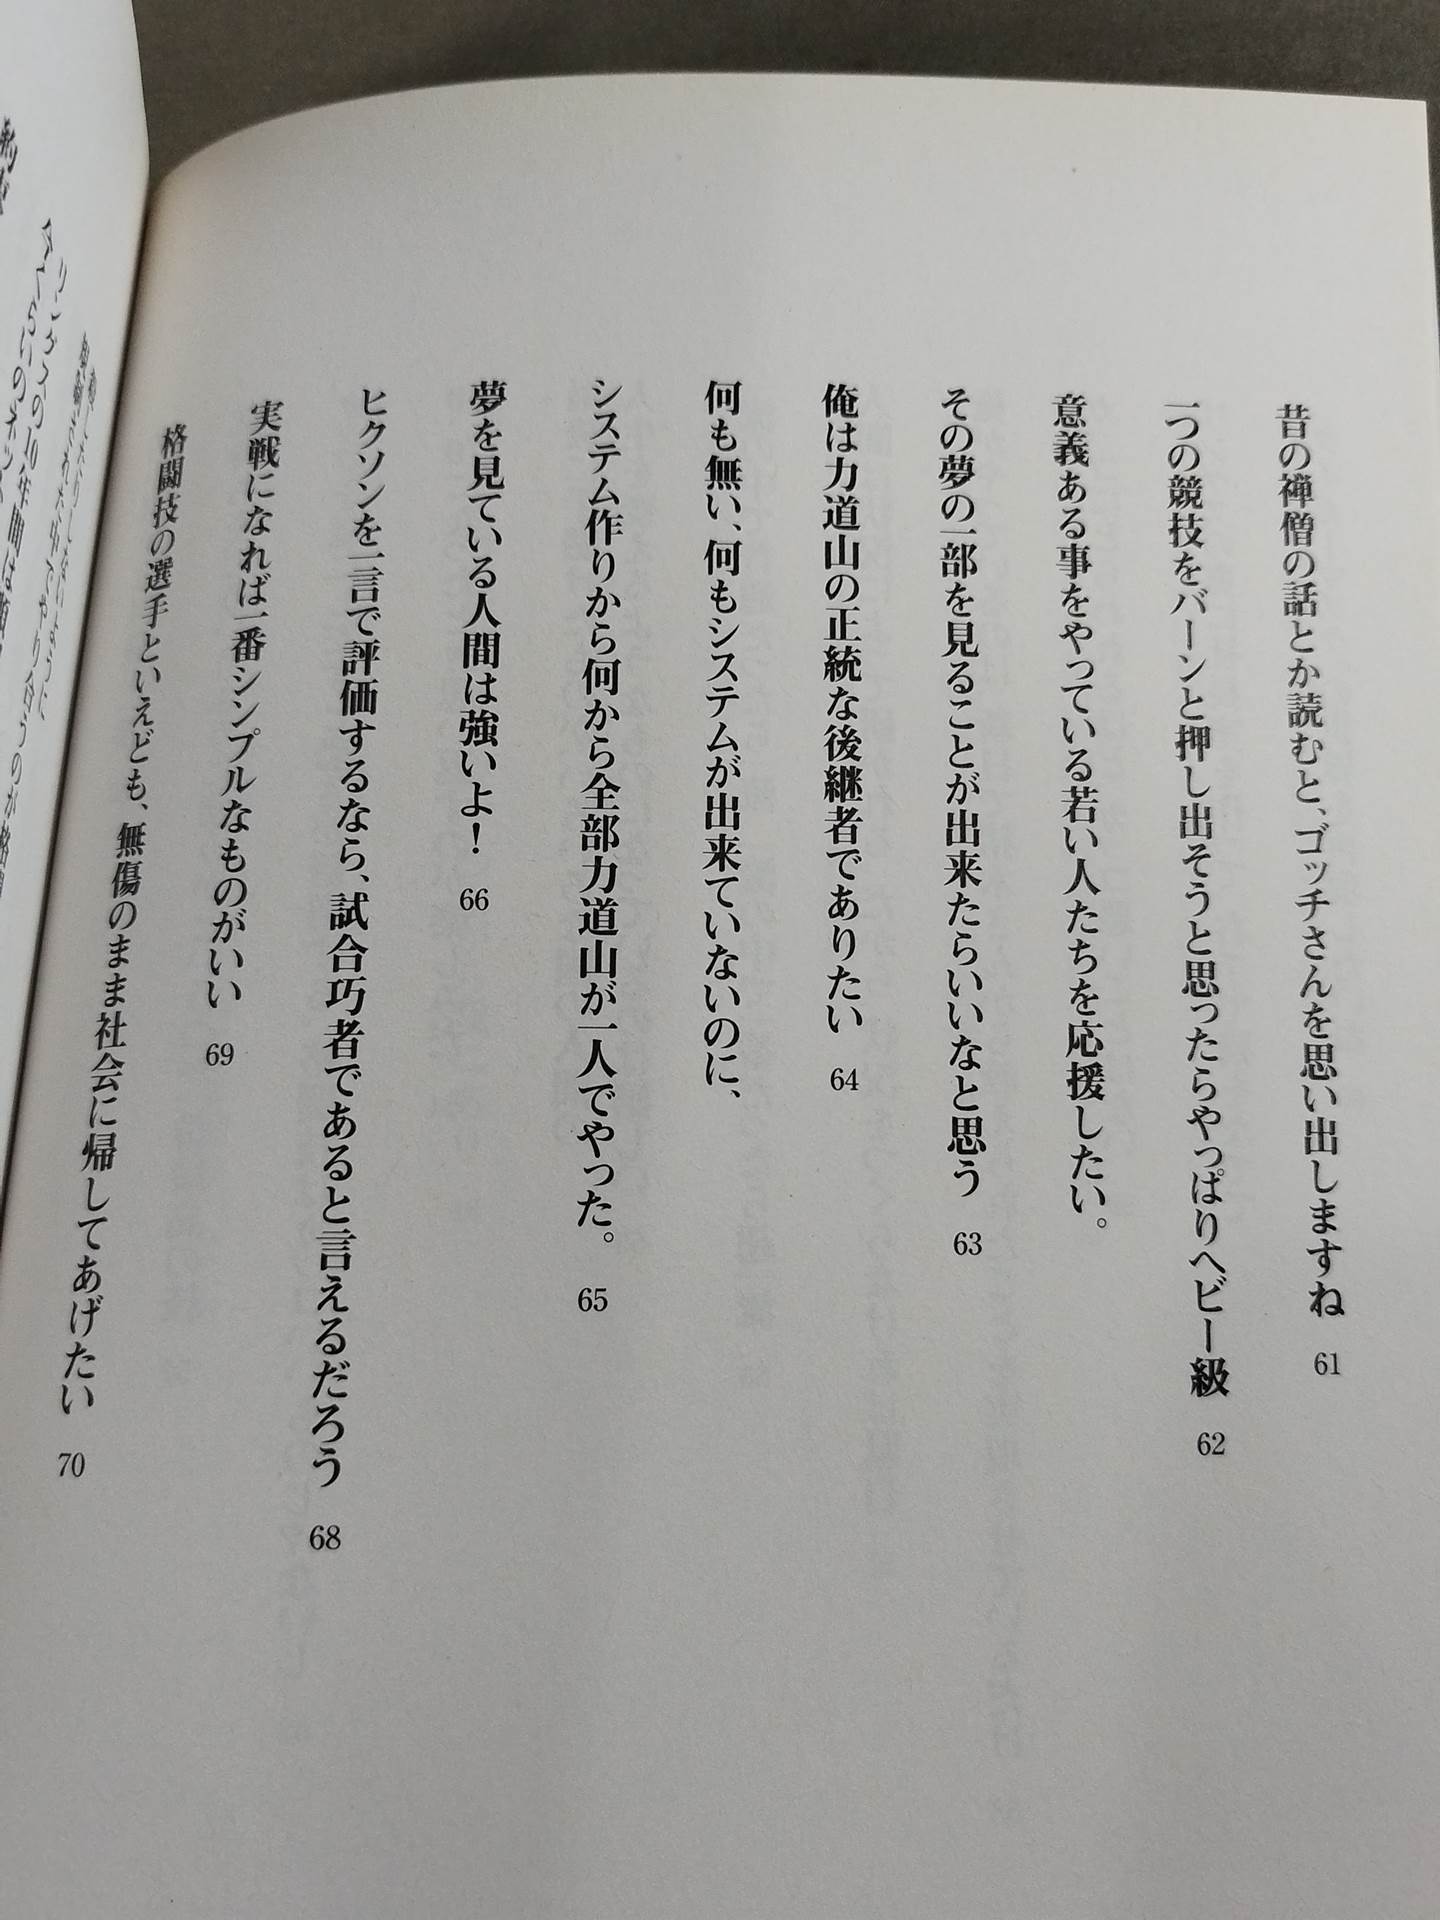 昔の禅僧の話とか読むと、ゴッチさんを思い出しますね 61
一つの競技をバーンと押し出そうと思ったらやっぱりヘビー級 62
意義ある事をやっている若い人たちを応援したい。
その夢の一部を見ることが出来たらいいなと思う 63
俺は力道山の正統な後継者でありたい 64
何も無い、何もシステムが出来ていないのに、
システム作りから何から全部力道山が一人でやった。 65
夢を見ている人間は強いよ！ 66
ヒクソンを一言で評価するなら、試合巧者であると言えるだろう 68
実戦になれば一番シンプルなものがいい 69
格闘技の選手といえども、無傷のまま社会に帰してあげたい 70
リングスの10年間は